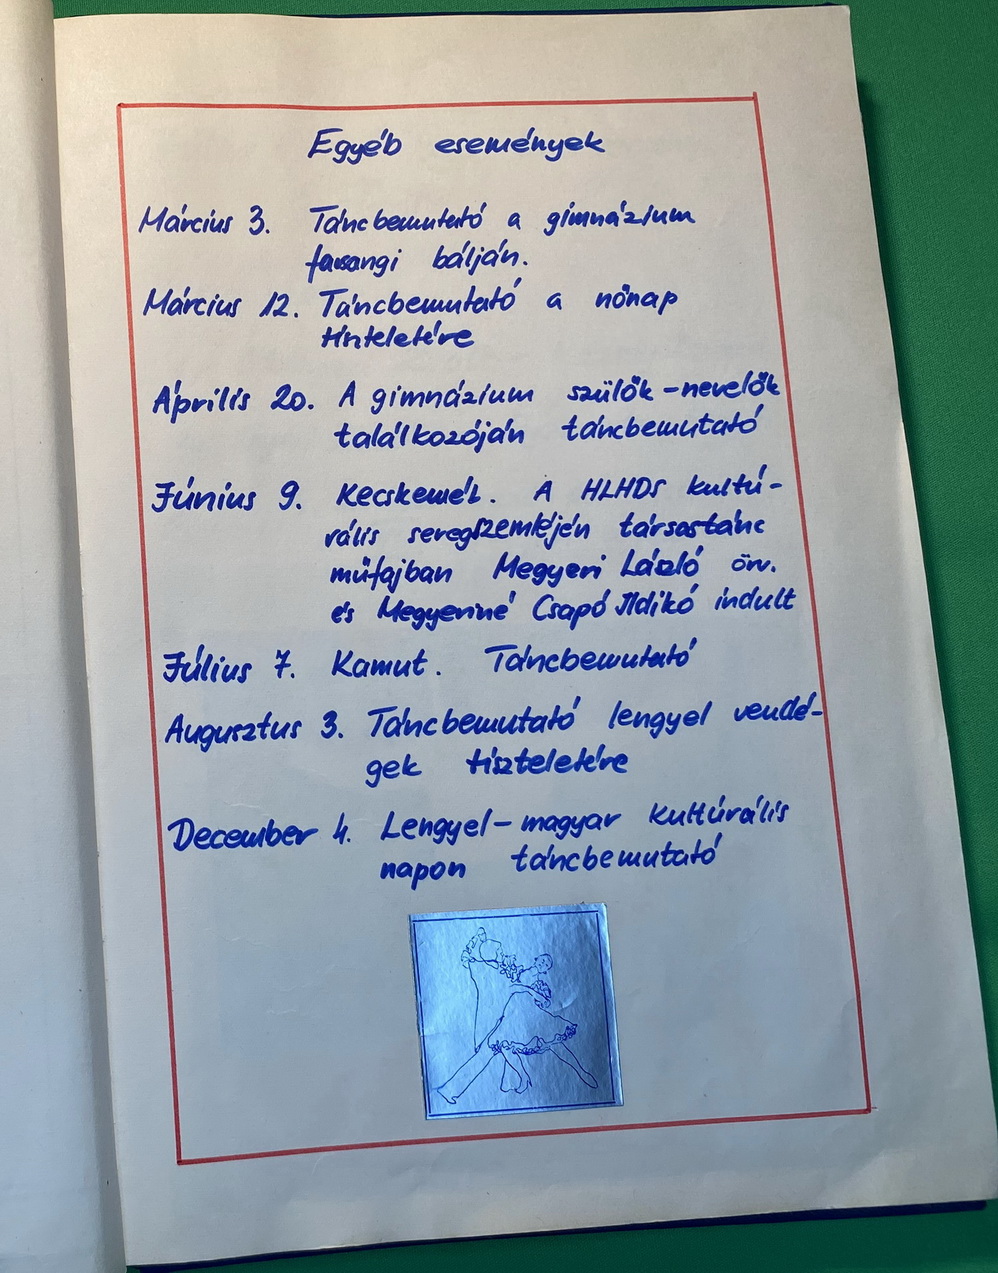 Egyéb események
Március 3. Táncbemutató a gimnázium
farsangi bálján.
Március 12. Táncbemutató a nőnap
tiszteletére
Április 20. A gimnázium szülők-nevelők
találkozóján táncbemutató
Június 9. Kecskemét. A HLHDS kultú-
rális seregszemléjén társastánc
műfajban Megyeri László örv.
és Megyeriné Csapó Ildikó indult
Július 7. Kamut. Táncbemutató
Augusztus 3. Táncbemutató lengyel vendé-
gek tiszteletére
December 4. Lengyel-magyar kultúrális
napon táncbemutató